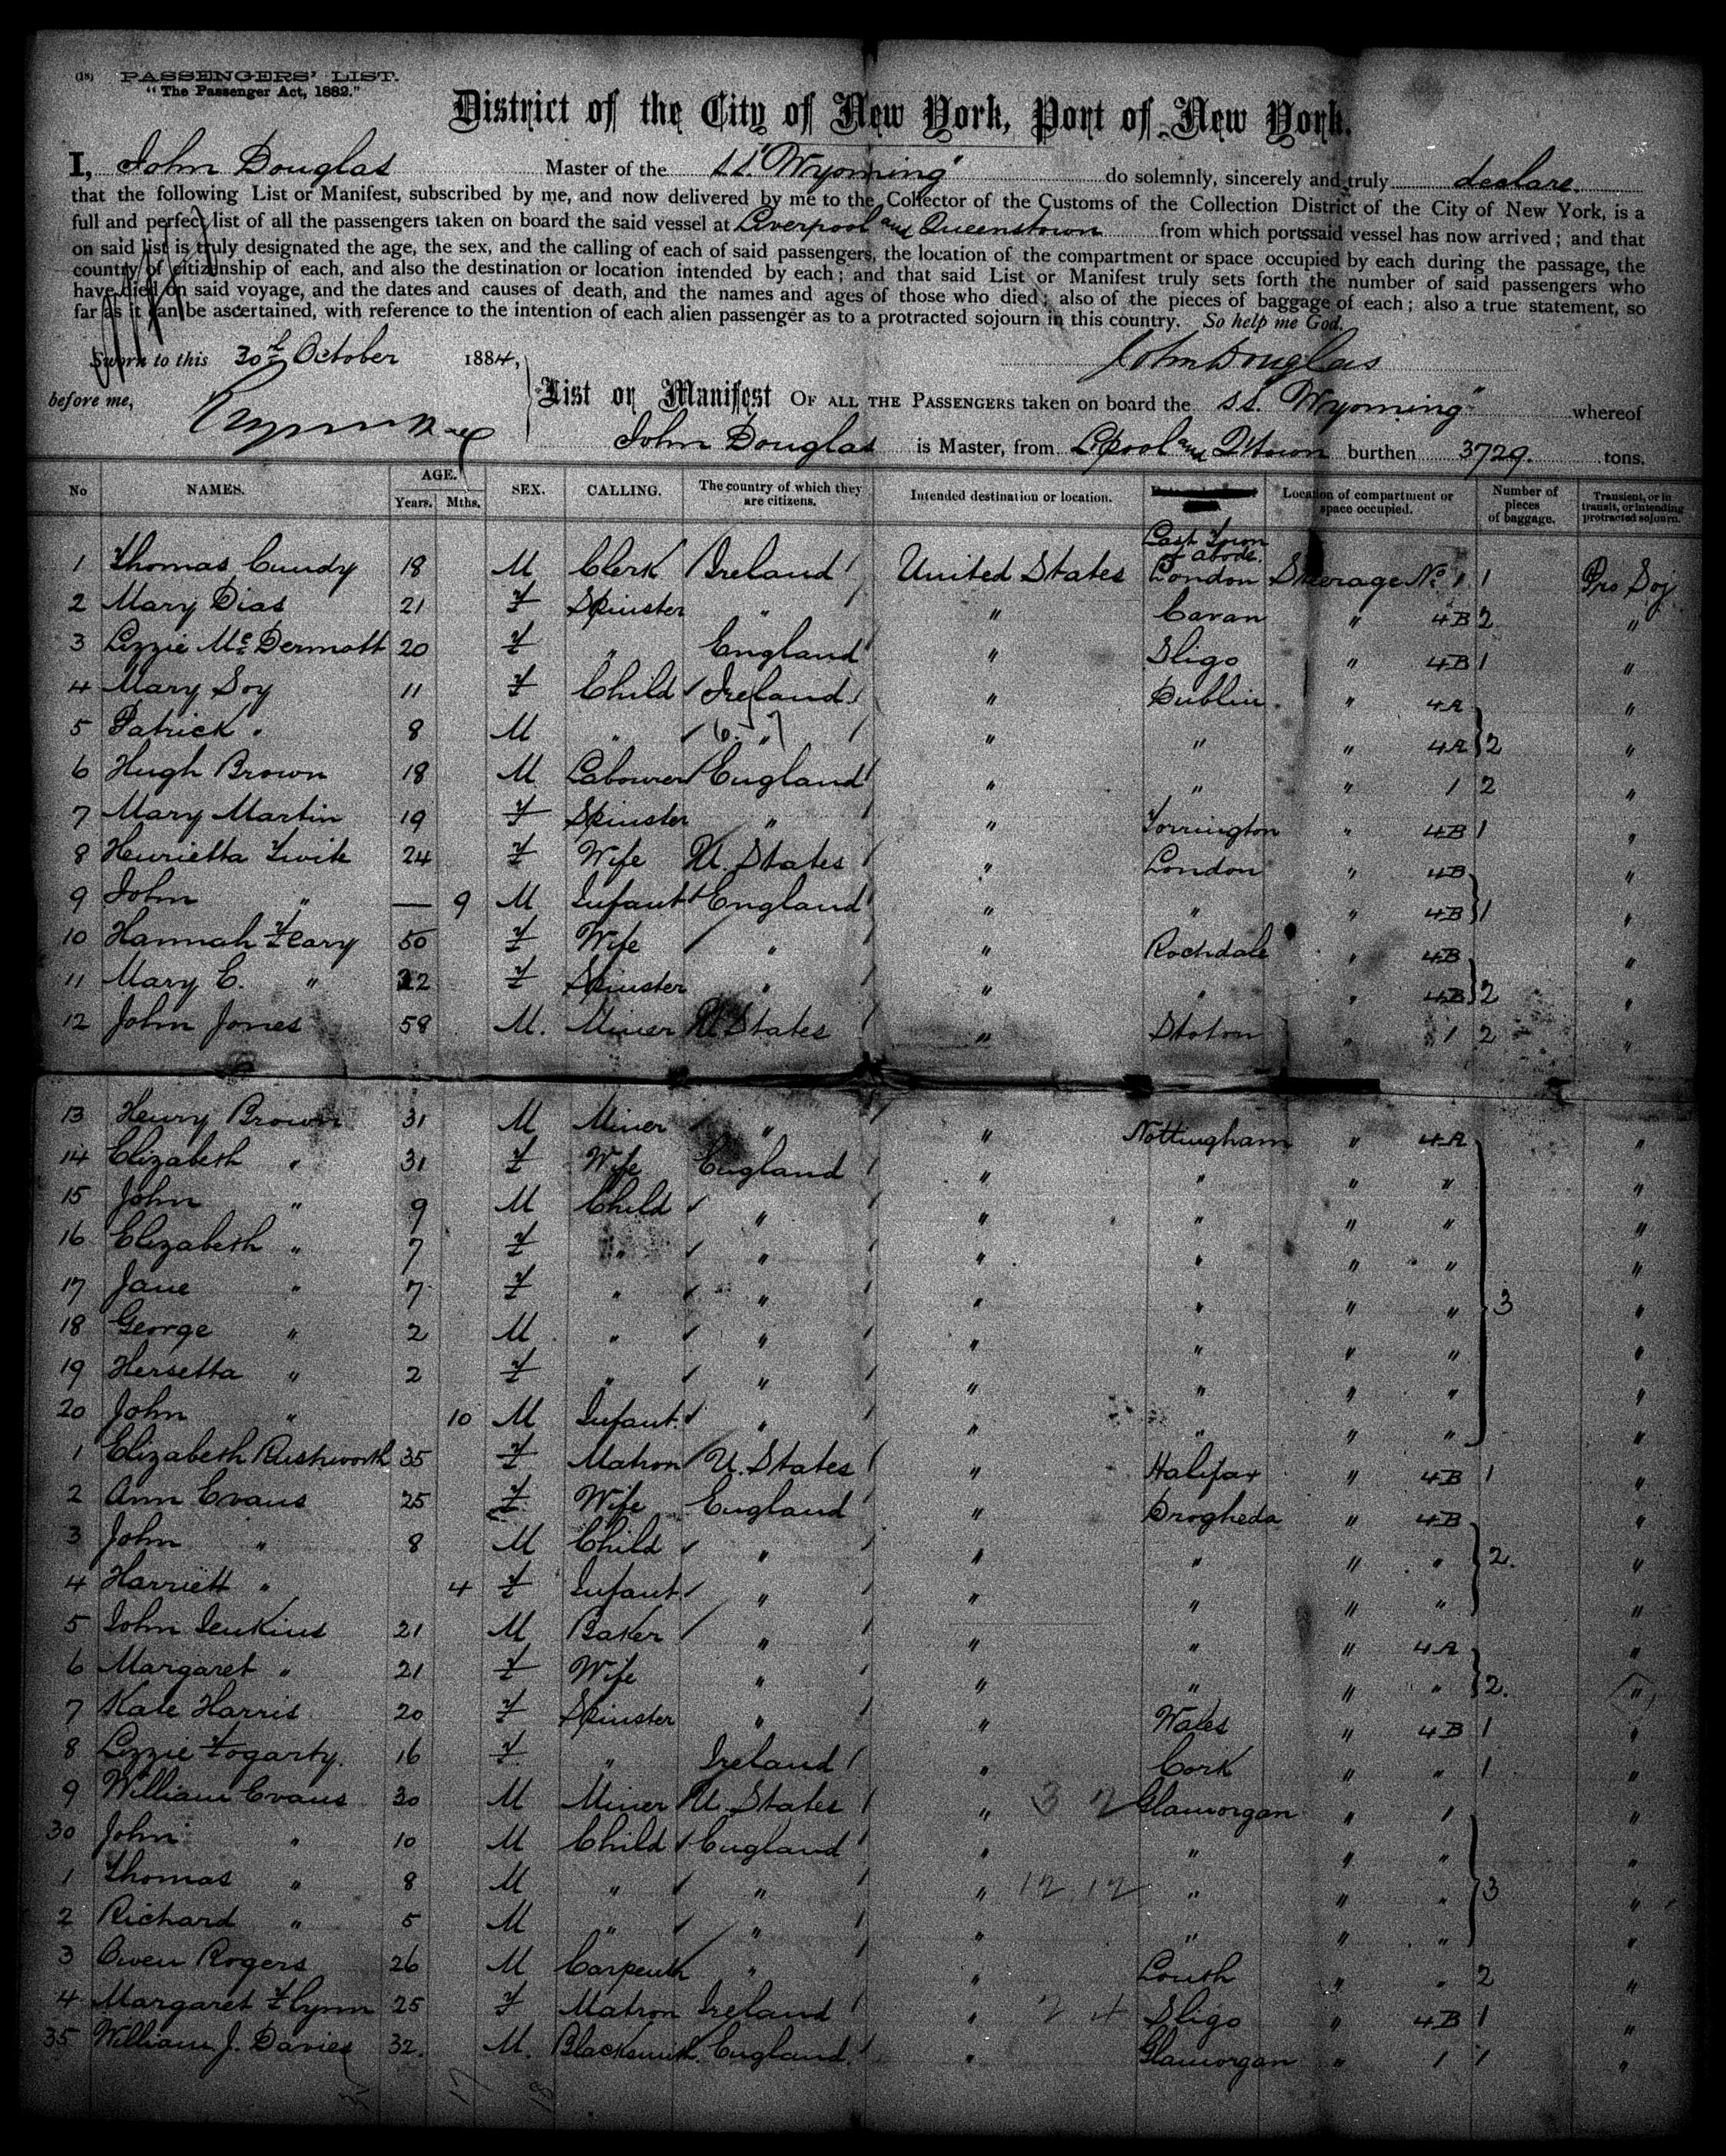 (18) PASSENGERS' LIST.
"The Passenger Act, 1882."
District of the City of New York, Port of New York.
I, John Douglas Master of the S.S. "Wyoming" do solemnly, sincerely and truly declare.
that the following List or Manifest, subscribed by me, and now delivered by me to the Collector of the Customs of the Collection District of the City of New York, is a
full and perfect list of all the passengers taken on board the said vessel at Liverpool and Queenstown from which ports said vessel has now arrived; and that
on said list is truly designated the age, the sex, and the calling of each of said passengers, the location of the compartment or space occupied by each during the passage, the
country of citizenship of each, and also the destination or location intended by each; and that said List or Manifest truly sets forth the number of said passengers who
have died on said voyage, and the dates and causes of death, and the names and ages of those who died; also of the pieces of baggage of each; also a true statement, so
far as it can be ascertained, with reference to the intention of each alien passenger as to a protracted sojourn in this country. So help me God.
Sworn to this 30th October 1884, John Douglas
before me,
List or Manifest OF ALL THE PASSENGERS taken on board the S.S. Wyoming" whereof
John Douglas is Master, from L'pool and Q'town burthen 3729. tons.
No NAMES. AGE. Years. Mths. SEX. CALLING. The country of which they are citizens. Intended destination or location. Last Town of abode. Location of compartment or space occupied. Number of pieces of baggage. Transient, or in transit, or intending protracted sojourn.
1 Thomas Cundy 18 M Clerk Ireland United States London Steerage No. 1 1 Pro Soj
2 Mary Dias 21 F Spinster " " Cavan " 4B 2 "
3 Lizzie McDermott 20 F " England " Sligo " 4B 1 "
4 Mary Soy 11 F Child Ireland " Dublin " 4A "
5 Patrick " 8 M " " " " " 4A } 2 "
6 Hugh Brown 18 M Labourer England " " " 1 2 "
7 Mary Martin 19 F Spinster " " Torrington " 4B 1 "
8 Henrietta Twite 24 F Wife U. States " London " 4B "
9 John " — 9 M Infant England " " " 4B } 1 "
10 Hannah Feary 50 F Wife " " Rochdale " 4B "
11 Mary E. " 22 F Spinster " " " " 4B } 2 "
12 John Jones 58 M. Miner U. States " Stoton " 1 2 "
13 Henry Brown 31 M Miner " " Nottingham " 4A "
14 Elizabeth " 31 F Wife England " " " " "
15 John " 9 M Child " " " " " "
16 Elizabeth " 7 F " " " " " " "
17 Jane " 7 F " " " " " " } 3 "
18 George " 2 M " " " " " " "
19 Hersetta " 2 F " " " " " " "
20 John " 10 M Infant. " " " " " "
1 Elizabeth Rushworth 35 F Matron U. States " Halifax " 4B 1 "
2 Ann Evans 25 F Wife England " Drogheda " 4B "
3 John " 8 M Child " " " " " } 2. "
4 Harriett " 4 F Infant " " " " " "
5 John Jenkins 21 M Baker " " " " 4A "
6 Margaret " 21 F Wife " " " " " } 2. "
7 Kate Harris 20 F Spinster " " Wales " 4B 1 "
8 Lizzie Fogarty. 16 F " Ireland " Cork " " 1 "
9 William Evans 30 M Miner U. States " Glamorgan " 1 "
30 John " 10 M Child England " " " " "
1 Thomas " 8 M " " " 12 12 " " " } 3 "
2 Richard " 5 M " " " " " " "
3 Owen Rogers 26 M Carpenter " " Louth " " 2 "
4 Margaret Flynn 25 F Matron Ireland " 2 4 Sligo " 4B 1 "
35 William J. Davies 32. M. Blacksmith. England. " Glamorgan " 1 1 "